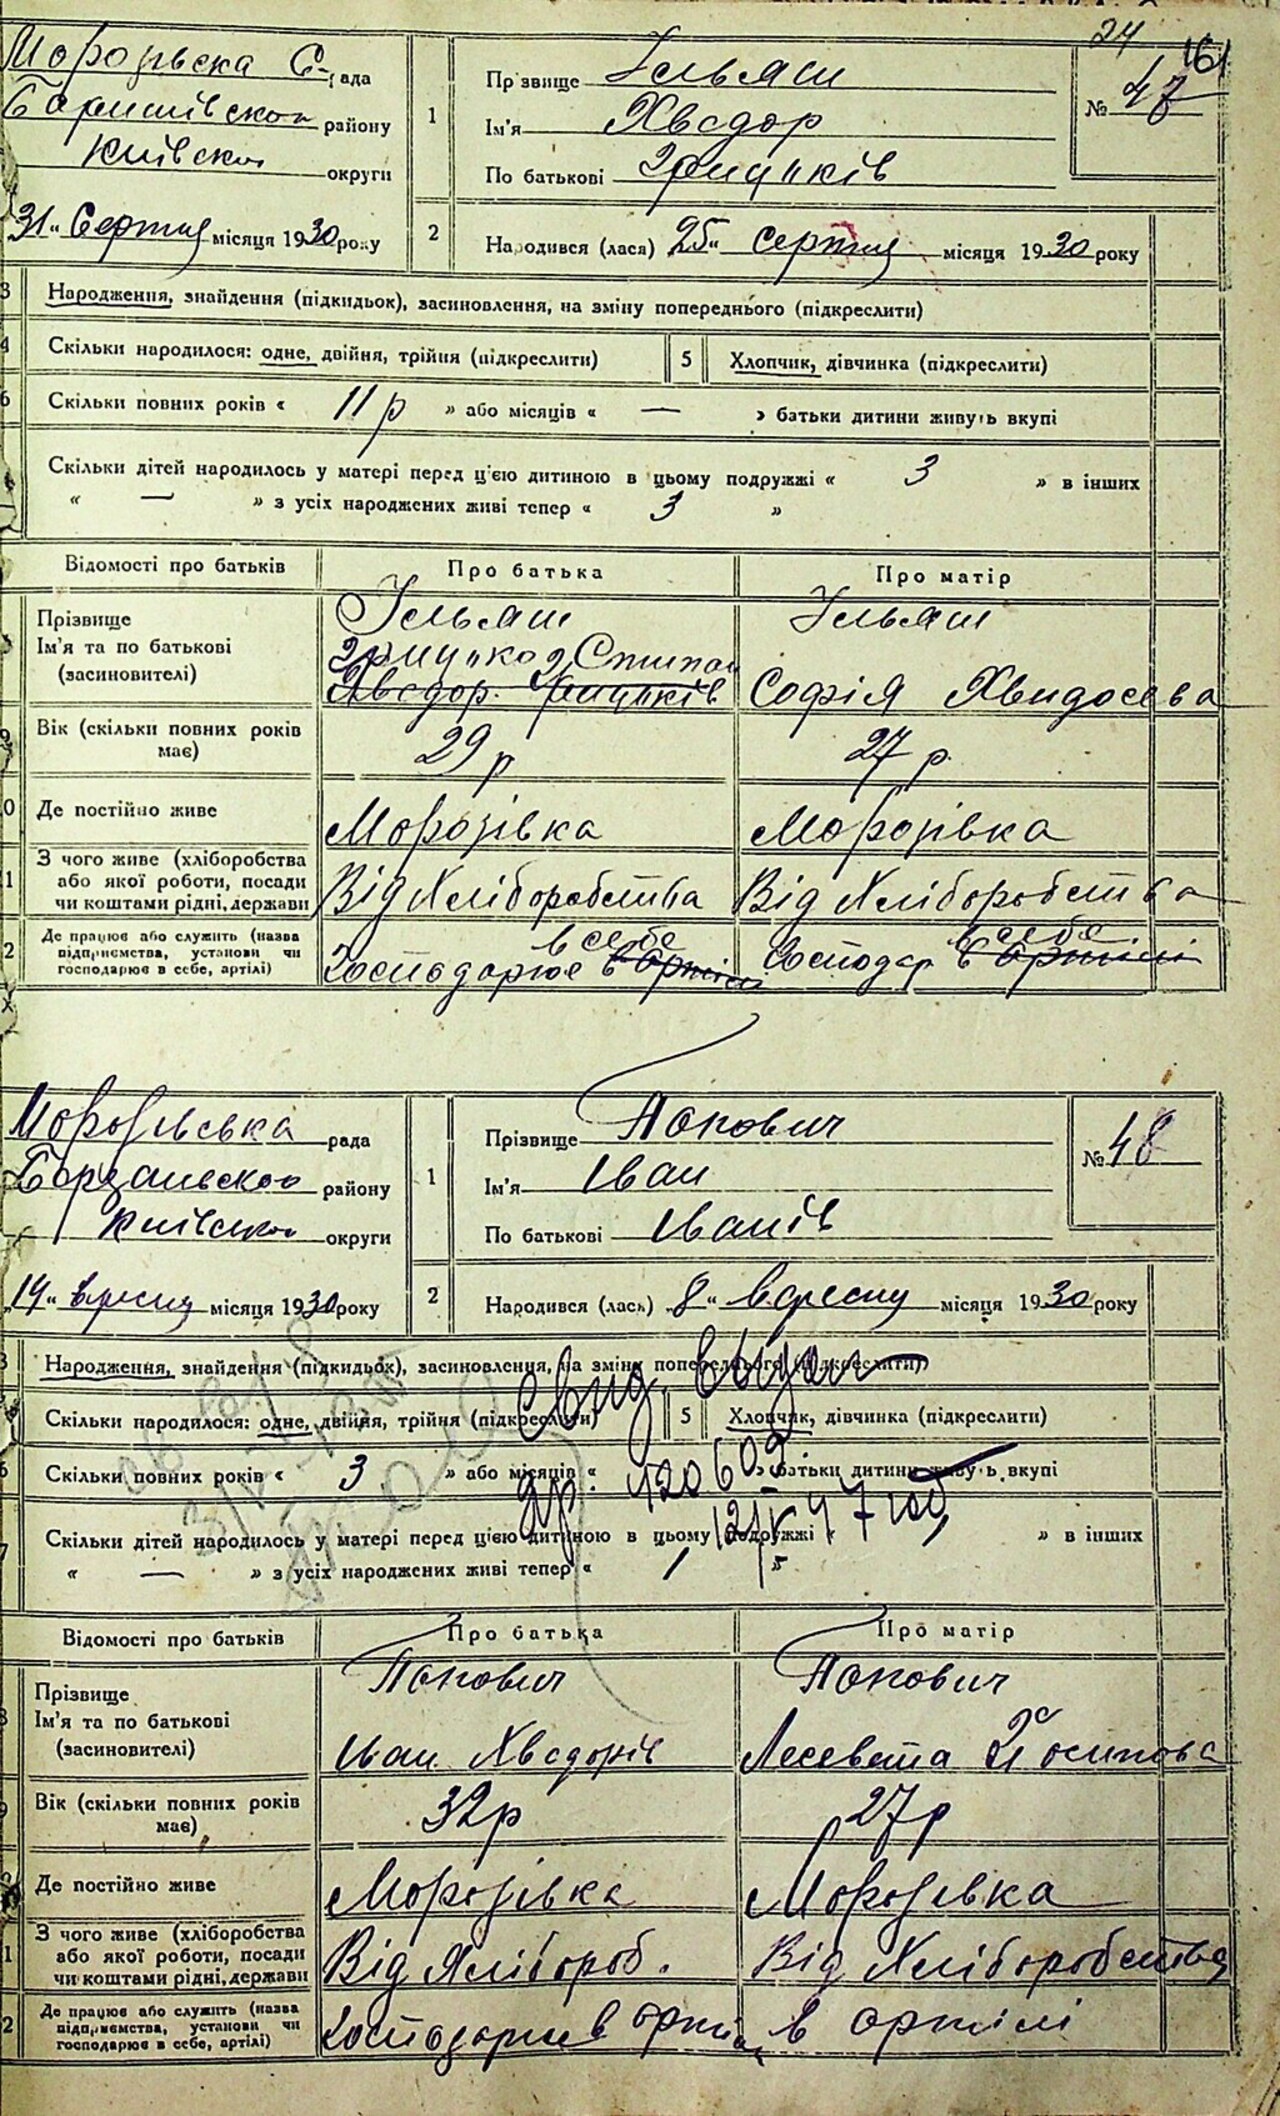 24
161
Морозівська С. рада
Баришівського району
Київської округи
31 „ Серпня місяця 1930 року
1
Прізвище Ільяш
Ім'я Хведор
По батькові Грицьків
№ 47
2
Народився (лася) 25 „ серпня місяця 1930 року
3 Народження, знайдення (підкидьок), засиновлення, на зміну попереднього (підкреслити)
4 Скільки народилося: одне, двійня, трійня (підкреслити) 5 Хлопчик, дівчинка (підкреслити)
6 Скільки повних років « 11 р » або місяців « — » батьки дитини живуть вкупі
Скільки дітей народилось у матері перед ц'єю дитиною в цьому подружжі « 3 » в інших
« — » з усіх народжених живі тепер « 3 »
Відомості про батьків Про батька Про матір
Прізвище Ільяш Ільяш
Ім'я та по батькові Грицько
(засиновителі) Хведор Грицьків Софія
Вік (скільки повних років має) 29 р 27 р.
0 Де постійно живе Морозівка Морозівка
1 З чого живе (хліборобства або якої роботи, посади чи коштами рідні, держави Від Хліборобства Від Хліборобства
2 Де працює або служить (назва підприємства, установи чи господарює в себе, артілі) Господарює в артілі в себе Господар в артілі в себе
Морозівська рада
району
Київської округи
14 „ вресня місяця 1930 року
1
Прізвище Попович
Ім'я Іван
По батькові Іванів
№ 48
2
Народився (лась) 8 „ вересну місяця 1930 року
Народження, знайдення (підкидьок), засиновлення, на зміну попереднього (підкреслити)
Свид. выдан
Скільки народилося: одне, двійня, трійня (підкреслити) 5 Хлопчик, дівчинка (підкреслити)
6 Скільки повних років « 3 » або місяців « » батьки дитини живуть вкупі
Скільки дітей народилось у матері перед ц'ією дитиною в цьому подружжі « » в інших
« — » з усіх народжених живі тепер « 1 »
Відомості про батьків Про батька Про матір
Прізвище Попович Попович
Ім'я та по батькові
(засиновителі) Іван Хведорів Лесевета Йосипова
Вік (скільки повних років має) 32 р 27 р
Де постійно живе Морозівка Морозівка
1 З чого живе (хліборобства або якої роботи, посади чи коштами рідні, держави Від Хлібороб. Від Хліборобства
2 Де працює або служить (назва підприємства, установи чи господарює в себе, артілі) Господарює в артілі в артілі